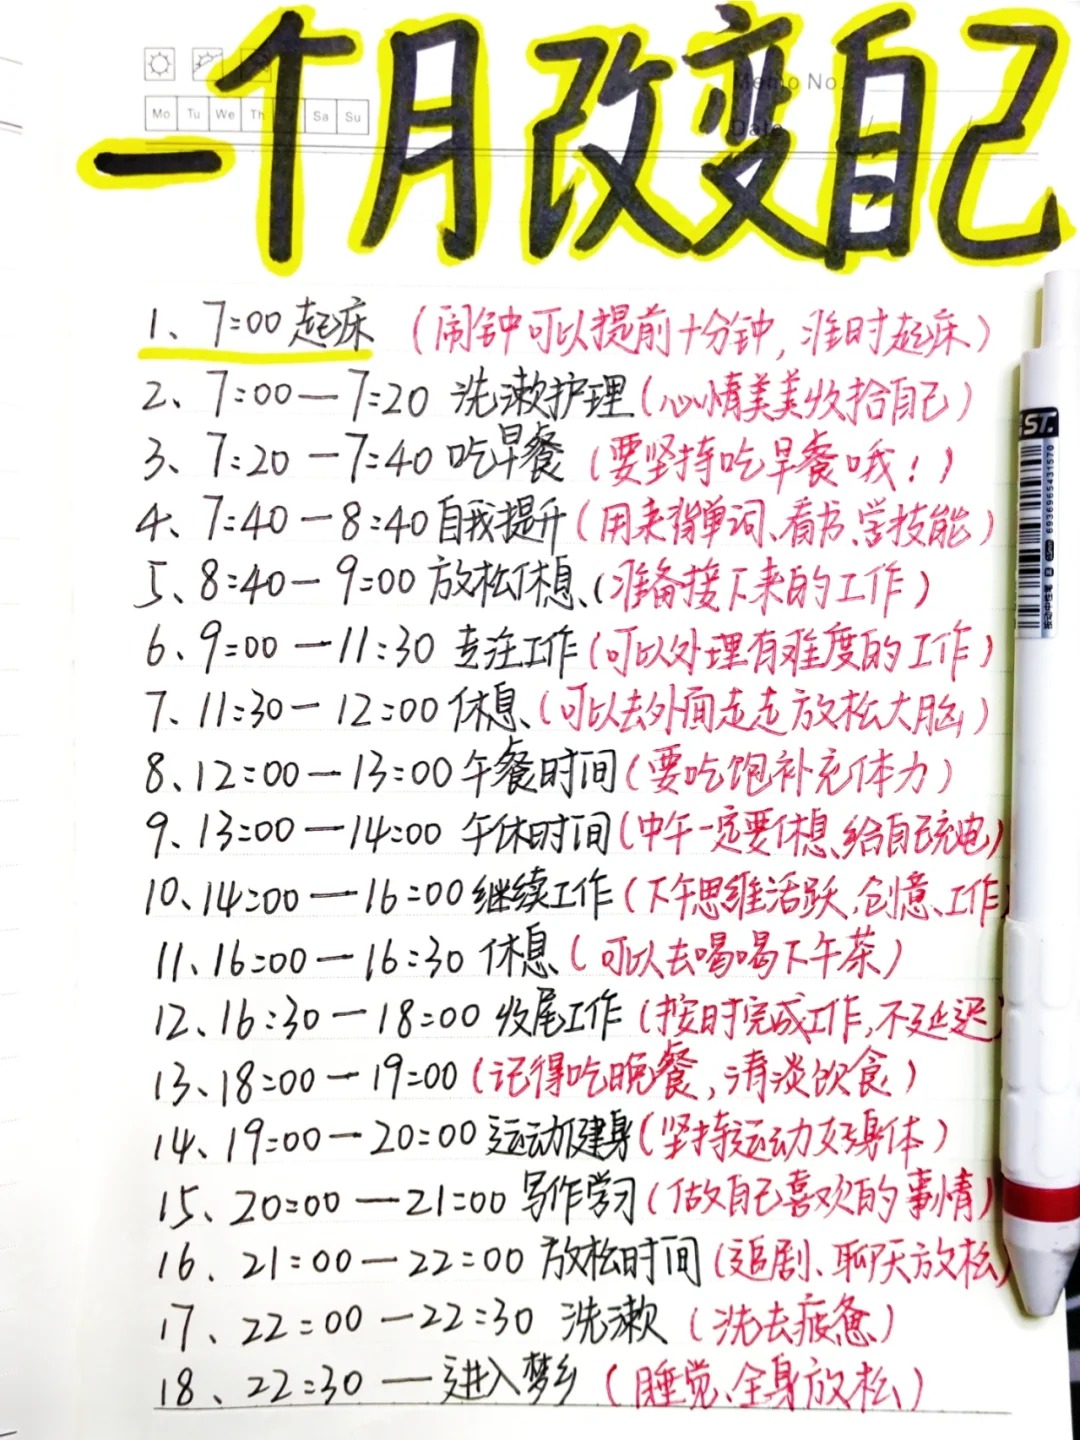 一个月改变自己
Memo No.
Mo Tu We Th Sa Su
Date
1、7:00 起床 (闹钟可以提前十分钟,准时起床)
2、7:00—7:20 洗漱护理(心情美美收拾自己)
3、7:20—7:40 吃早餐 (要坚持吃早餐哦!)
4、7:40—8:40 自我提升(用来背单词、看书、学技能)
5、8:40—9:00 放松休息、(准备接下来的工作)
6、9:00—11:30 专注工作(可以处理有难度的工作)
7、11:30—12:00 休息、(可以去外面走走放松大脑)
8、12:00—13:00 午餐时间(要吃饱补充体力)
9、13:00—14:00 午休时间(中午一定要休息、给自己充电)
10、14:00—16:00 继续工作(下午思维活跃,创意、工作)
11、16:00—16:30 休息(可以去喝喝下午茶)
12、16:30—18:00 收尾工作(按时完成工作,不延迟)
13、18:00—19:00(记得吃晚餐,清淡饮食)
14、19:00—20:00 运动健身(坚持运动好身体)
15、20:00—21:00 写作学习(做自己喜欢的事情)
16、21:00—22:00 放松时间(追剧、聊天放松)
17、22:00—22:30 洗漱 (洗去疲惫)
18、22:30—进入梦乡 (睡觉、全身放松)
ST.
6936965431570